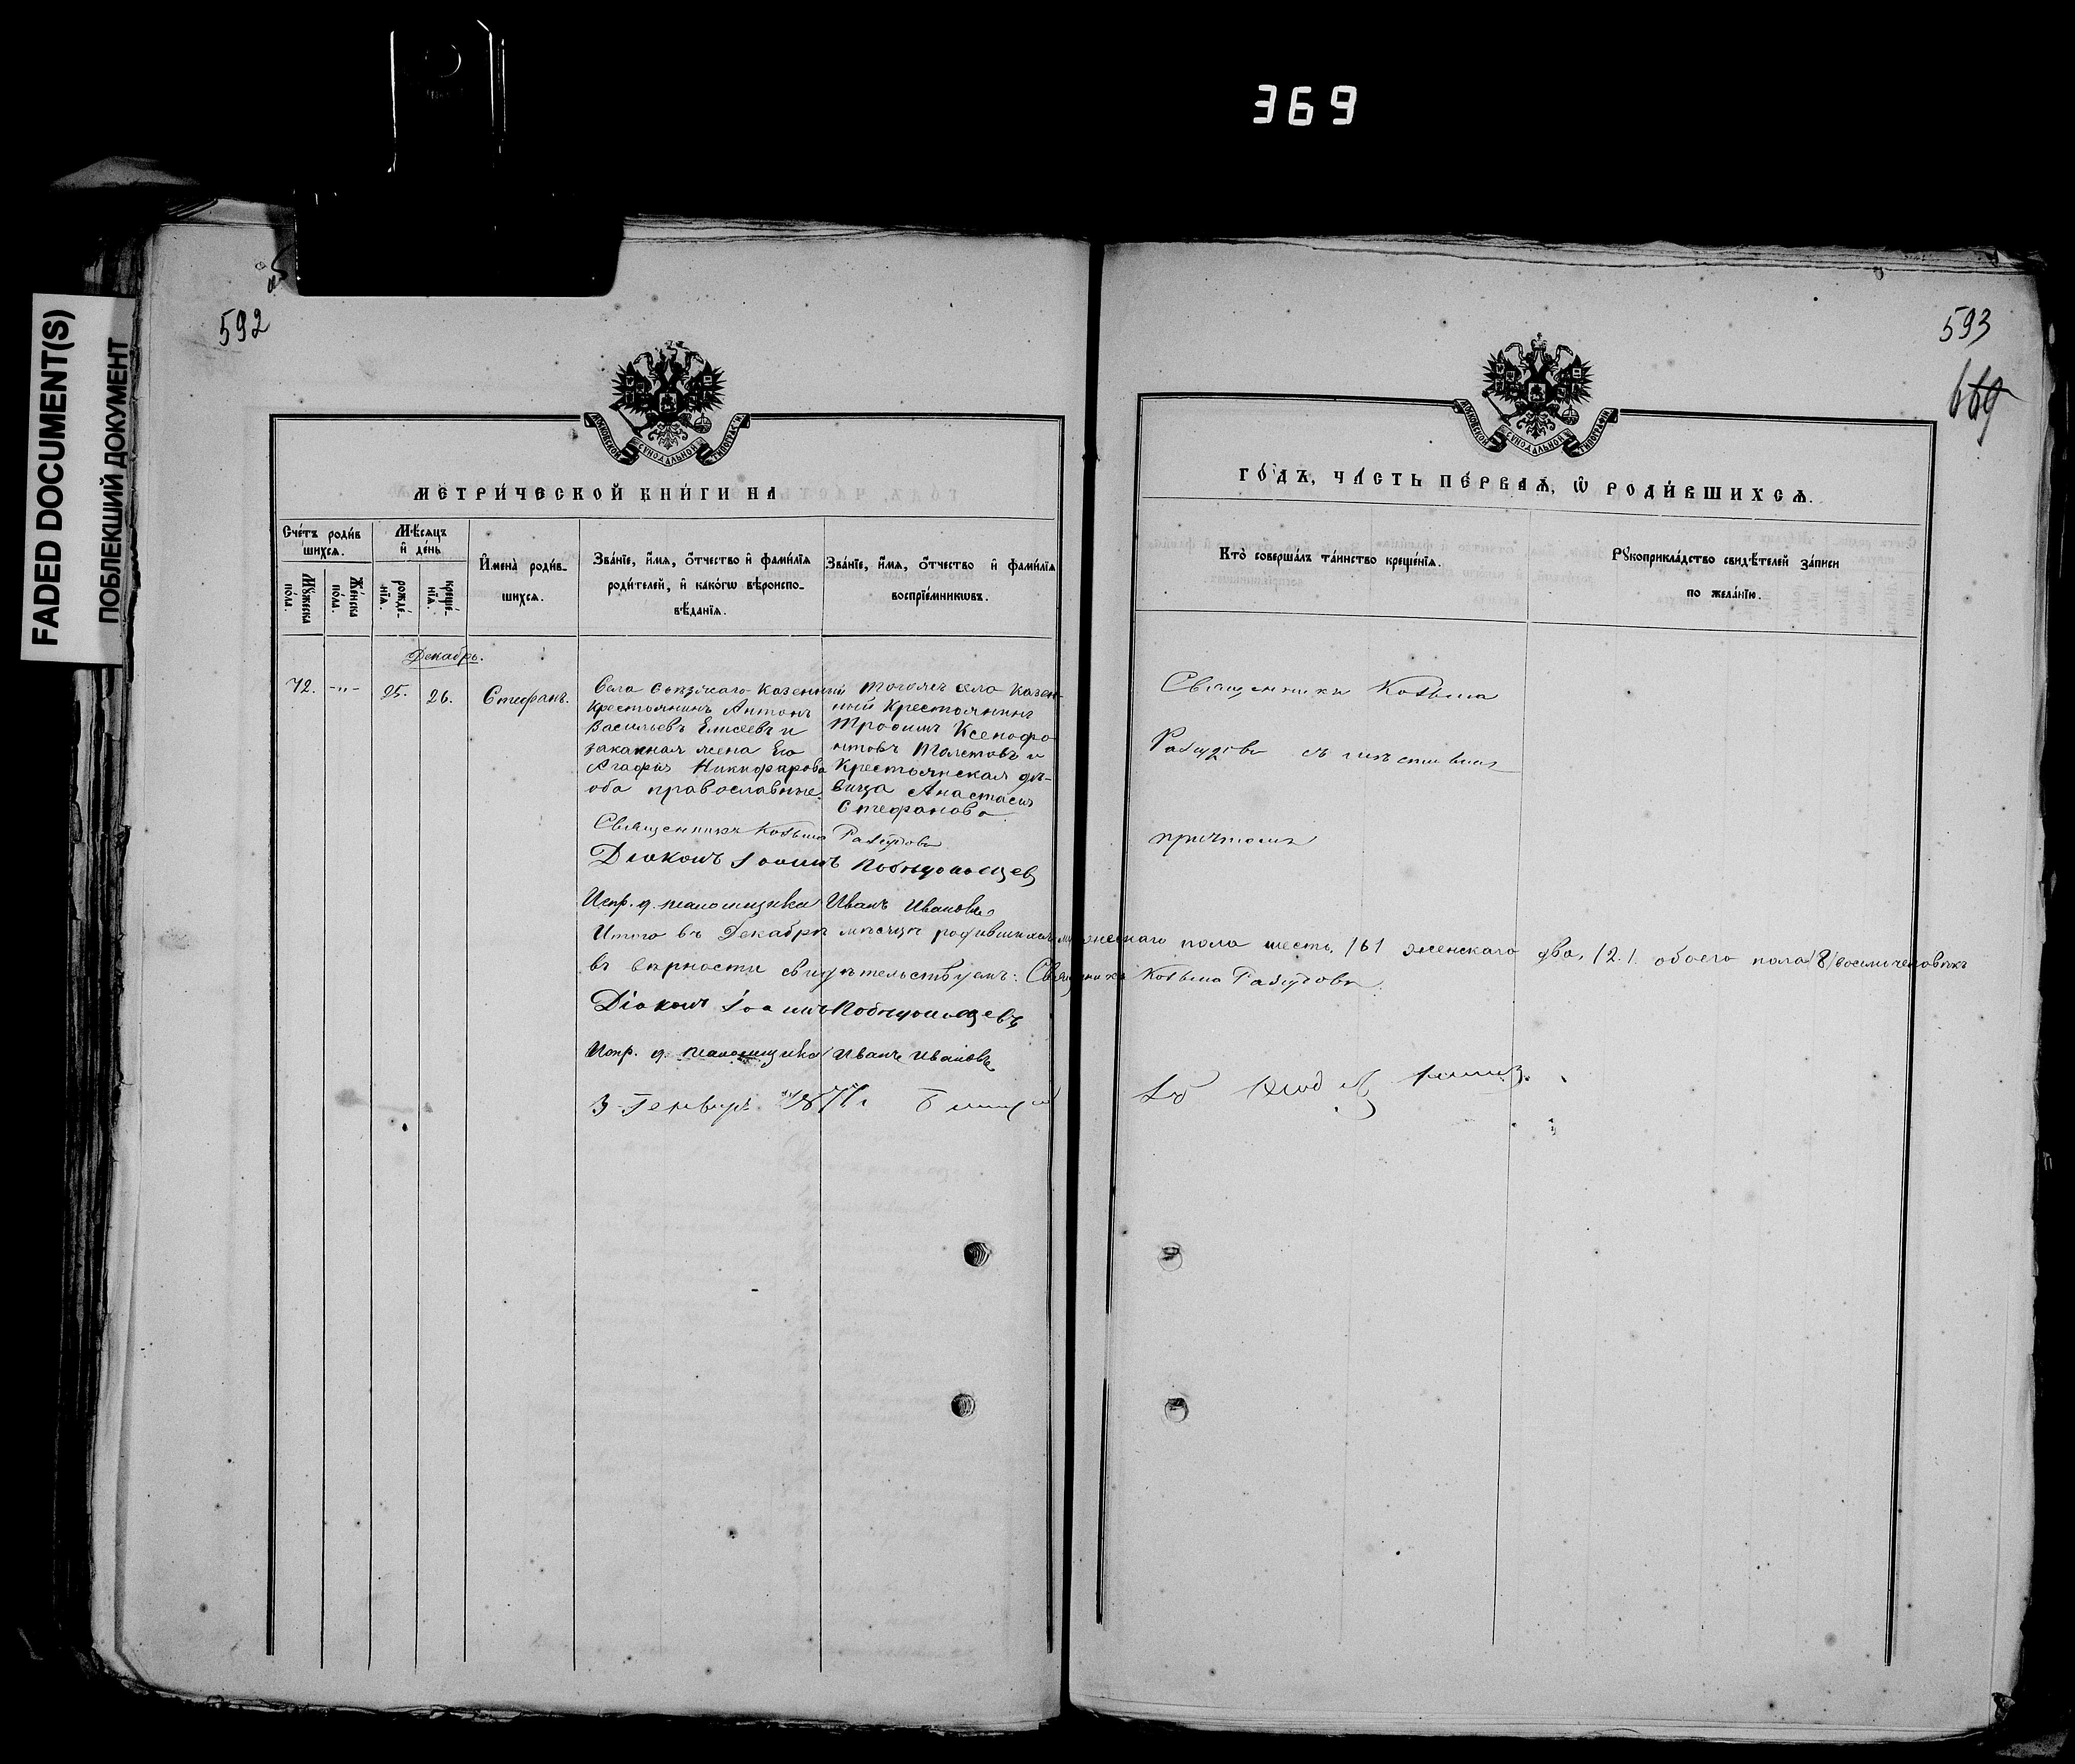 369
FADED DOCUMENT(S)
ПОБЛЕКШИЙ ДОКУМЕНТ
592
МОСКОВСКОЙ СѴНОДАЛЬНОЙ ТИПОГРАФІИ
МЕТРИ́ЧЕСКОЙ КНИ́ГИ НА
Сче́тъ роди́в
шихсѧ.
Мѣ́сѧцъ
и҆ де́нь
Мꙋ́жеска
по́ла.
Же́нска
по́ла.
рожде́-
нїѧ.
креще́-
нїѧ.
И҆мена̀ роди́в-
шихсѧ.
Зва́нїе, и҆́мѧ, ѻ҆́тчество и҆ фами́лїѧ
роди́телей, и҆ како́гѡ вѣроиспо-
вѣ́данїѧ.
Зва́нїе, и҆́мѧ, ѻ҆́тчество и҆ фами́лїѧ
воспрїе́мникѡвъ.
Декабрь.
72. -"- 25. 26. Стефанъ.
Села казенный
Крестьянинъ Антонъ
Васильевъ Елисеевъ и
законная жена Его
Агафія Никифорова
оба православные.
Тогоже села казен-
ный Крестьянинъ
Трофимъ Ксенофо
нтовъ Толстовъ и
Крестьянская дѣ-
вица Анастасія
Стефанова
Священникъ Козьма
Діаконъ Іоаннъ Побѣдоносцевъ
Испр. д. псаломщика Иванъ Ивановъ
Итого въ Декабрѣ мѣсяцѣ родившихся мужескаго пола шесть, /6/ женскаго два, /2/. обоего пола /8/ восемь человѣкъ
въ вѣрности свидѣтельствуемъ: Священникъ Козьма
Діаконъ Іоаннъ Побѣдоносцевъ
Испр. д. псаломщика Иванъ Ивановъ
593
669
МОСКОВСКОЙ СѴНОДАЛЬНОЙ ТИПОГРАФІИ
ГО́ДЪ, ЧА́СТЬ ПЕ́РВАѦ, Ѡ҆ РОДИ́ВШИХСѦ.
Кто̀ соверша́лъ та́инство креще́нїѧ.
Рꙋкоприкла́дство свидѣ́телей за́писи
по жела́нїю.
Священникъ Козьма
причтомъ